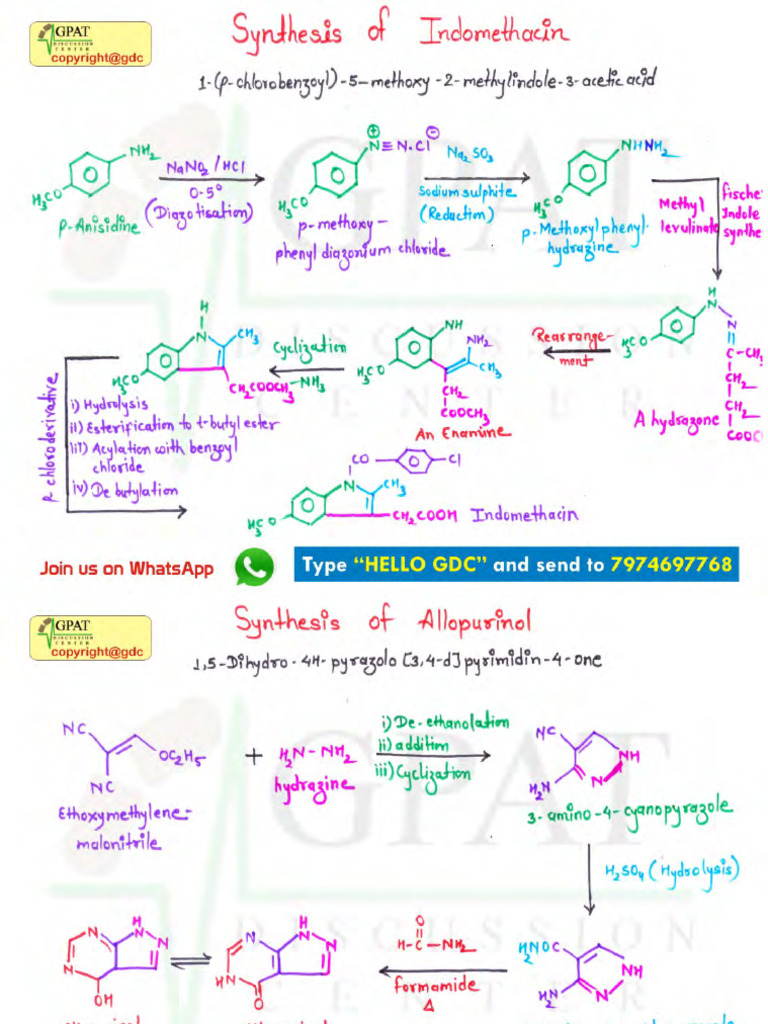 GPAT
DISCUSSION
CENTER
copyright@gdc
Synthesis of Indomethacin
1-(p-chlorobenzoyl)-5-methoxy-2-methylindole-3-acetic acid
NH2
H3CO
p-Anisidine
NaNO2/HCl
0-5°
(Diazotisation)
N≡N.Cl
H3CO
p-methoxy-
phenyl diazonium chloride
Na2SO3
sodium sulphite
(Reduction)
NHNH2
H3CO
p-Methoxylphenyl-
hydrazine
Methyl
levulinate
fische
Indole
synthe
H
N
N
H3CO
C-CH
CH2
CH2
COOC
A hydrazone
Rearrange-
ment
NH
NH2
H3CO
CH3
CH2
COOCH3
An Enamine
Cyclization
-NH3
H
N
CH3
H3CO
CH2COOCH3
p-chloroderivative
i) Hydrolysis
ii) Esterification to t-butyl ester
iii) Acylation with benzoyl
chloride
iv) De butylation
CO
Cl
N
CH3
H3CO
CH2COOH
Indomethacin
Join us on WhatsApp
Type “HELLO GDC” and send to 7974697768
GPAT
DISCUSSION
CENTER
copyright@gdc
Synthesis of Allopurinol
1,5-Dihydro-4H-pyrazolo [3,4-d]pyrimidin-4-one
NC
OC2H5
NC
Ethoxymethylene-
malonitrile
+
H2N-NH2
hydrazine
i) De-ethanolation
ii) addition
iii) Cyclization
NC
NH
H2N
N
3-amino-4-cyanopyrazole
H2SO4 (Hydrolysis)
H2NOC
NH
H2N
N
O
H-C-NH2
formamide
Δ
H
N
N
N
HN
O
H
N
N
N
N
OH
GPAT
DISCUSSION
CENTER
GPAT
DISCUSSION
CENTER